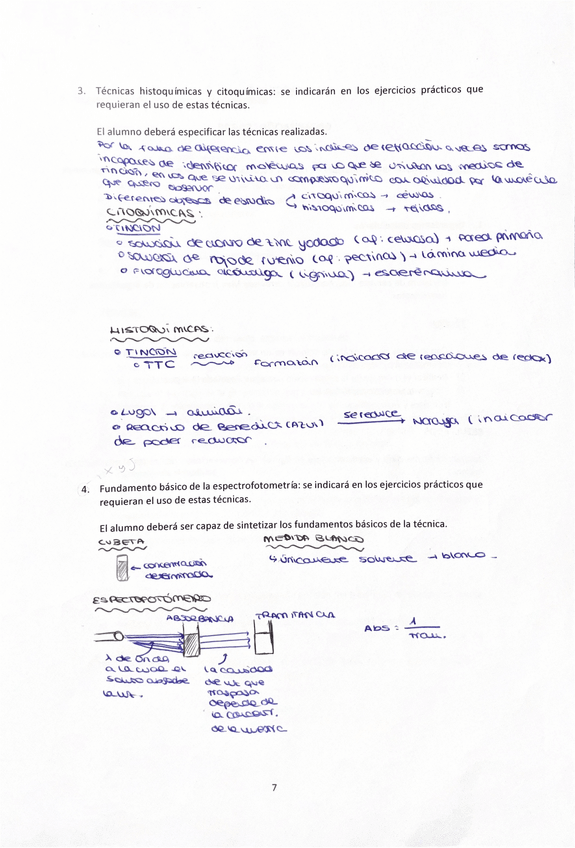 3. Técnicas histoquímicas y citoquímicas: se indicarán en los ejercicios prácticos que
requieran el uso de estas técnicas.
El alumno deberá especificar las técnicas realizadas.
Por la falta de diferencia entre los indices de refracción a veces somos
incapaces de identificar moléculas por lo que se utilizan los medios de
tinción, en los que se utiliza un compuesto químico con afinidad por la molécula
que quiero observar.
Diferentes objetos de estudio citoquímicas → células.
histoquímicas → tejidos.
CITOQUIMICAS:
TINCION
solución de cloruro de zinc yodado (af: celulosa) → Pared primaria
solución de rojo de rutenio (af: pectinas) → lámina media
Floroglucina alcohólica (lignina) → esclerénquima
HISTOQUIMICAS:
TINCION
TTC reducción → Formazán (indicador de reacciones de redox)
Lugol → almidón.
Reactivo de Benedict (Azul) se reduce → Naranja (indicador
de poder reductor.
x y j
4. Fundamento básico de la espectrofotometría: se indicará en los ejercicios prácticos que
requieran el uso de estas técnicas.
El alumno deberá ser capaz de sintetizar los fundamentos básicos de la técnica.
CUBETA
← concentración
determinada
MEDIDA BLANCO
↳ únicamente solvente → blanco
ESPECTOFOTÓMERO
ABSORBANCIA
TRAMITANCIA
Abs: 1
tran.
λ de onda
a la cual el
soluto absorbe
la luz.
la cantidad
de luz que
traspasa
depende de
la concent.
de la
7